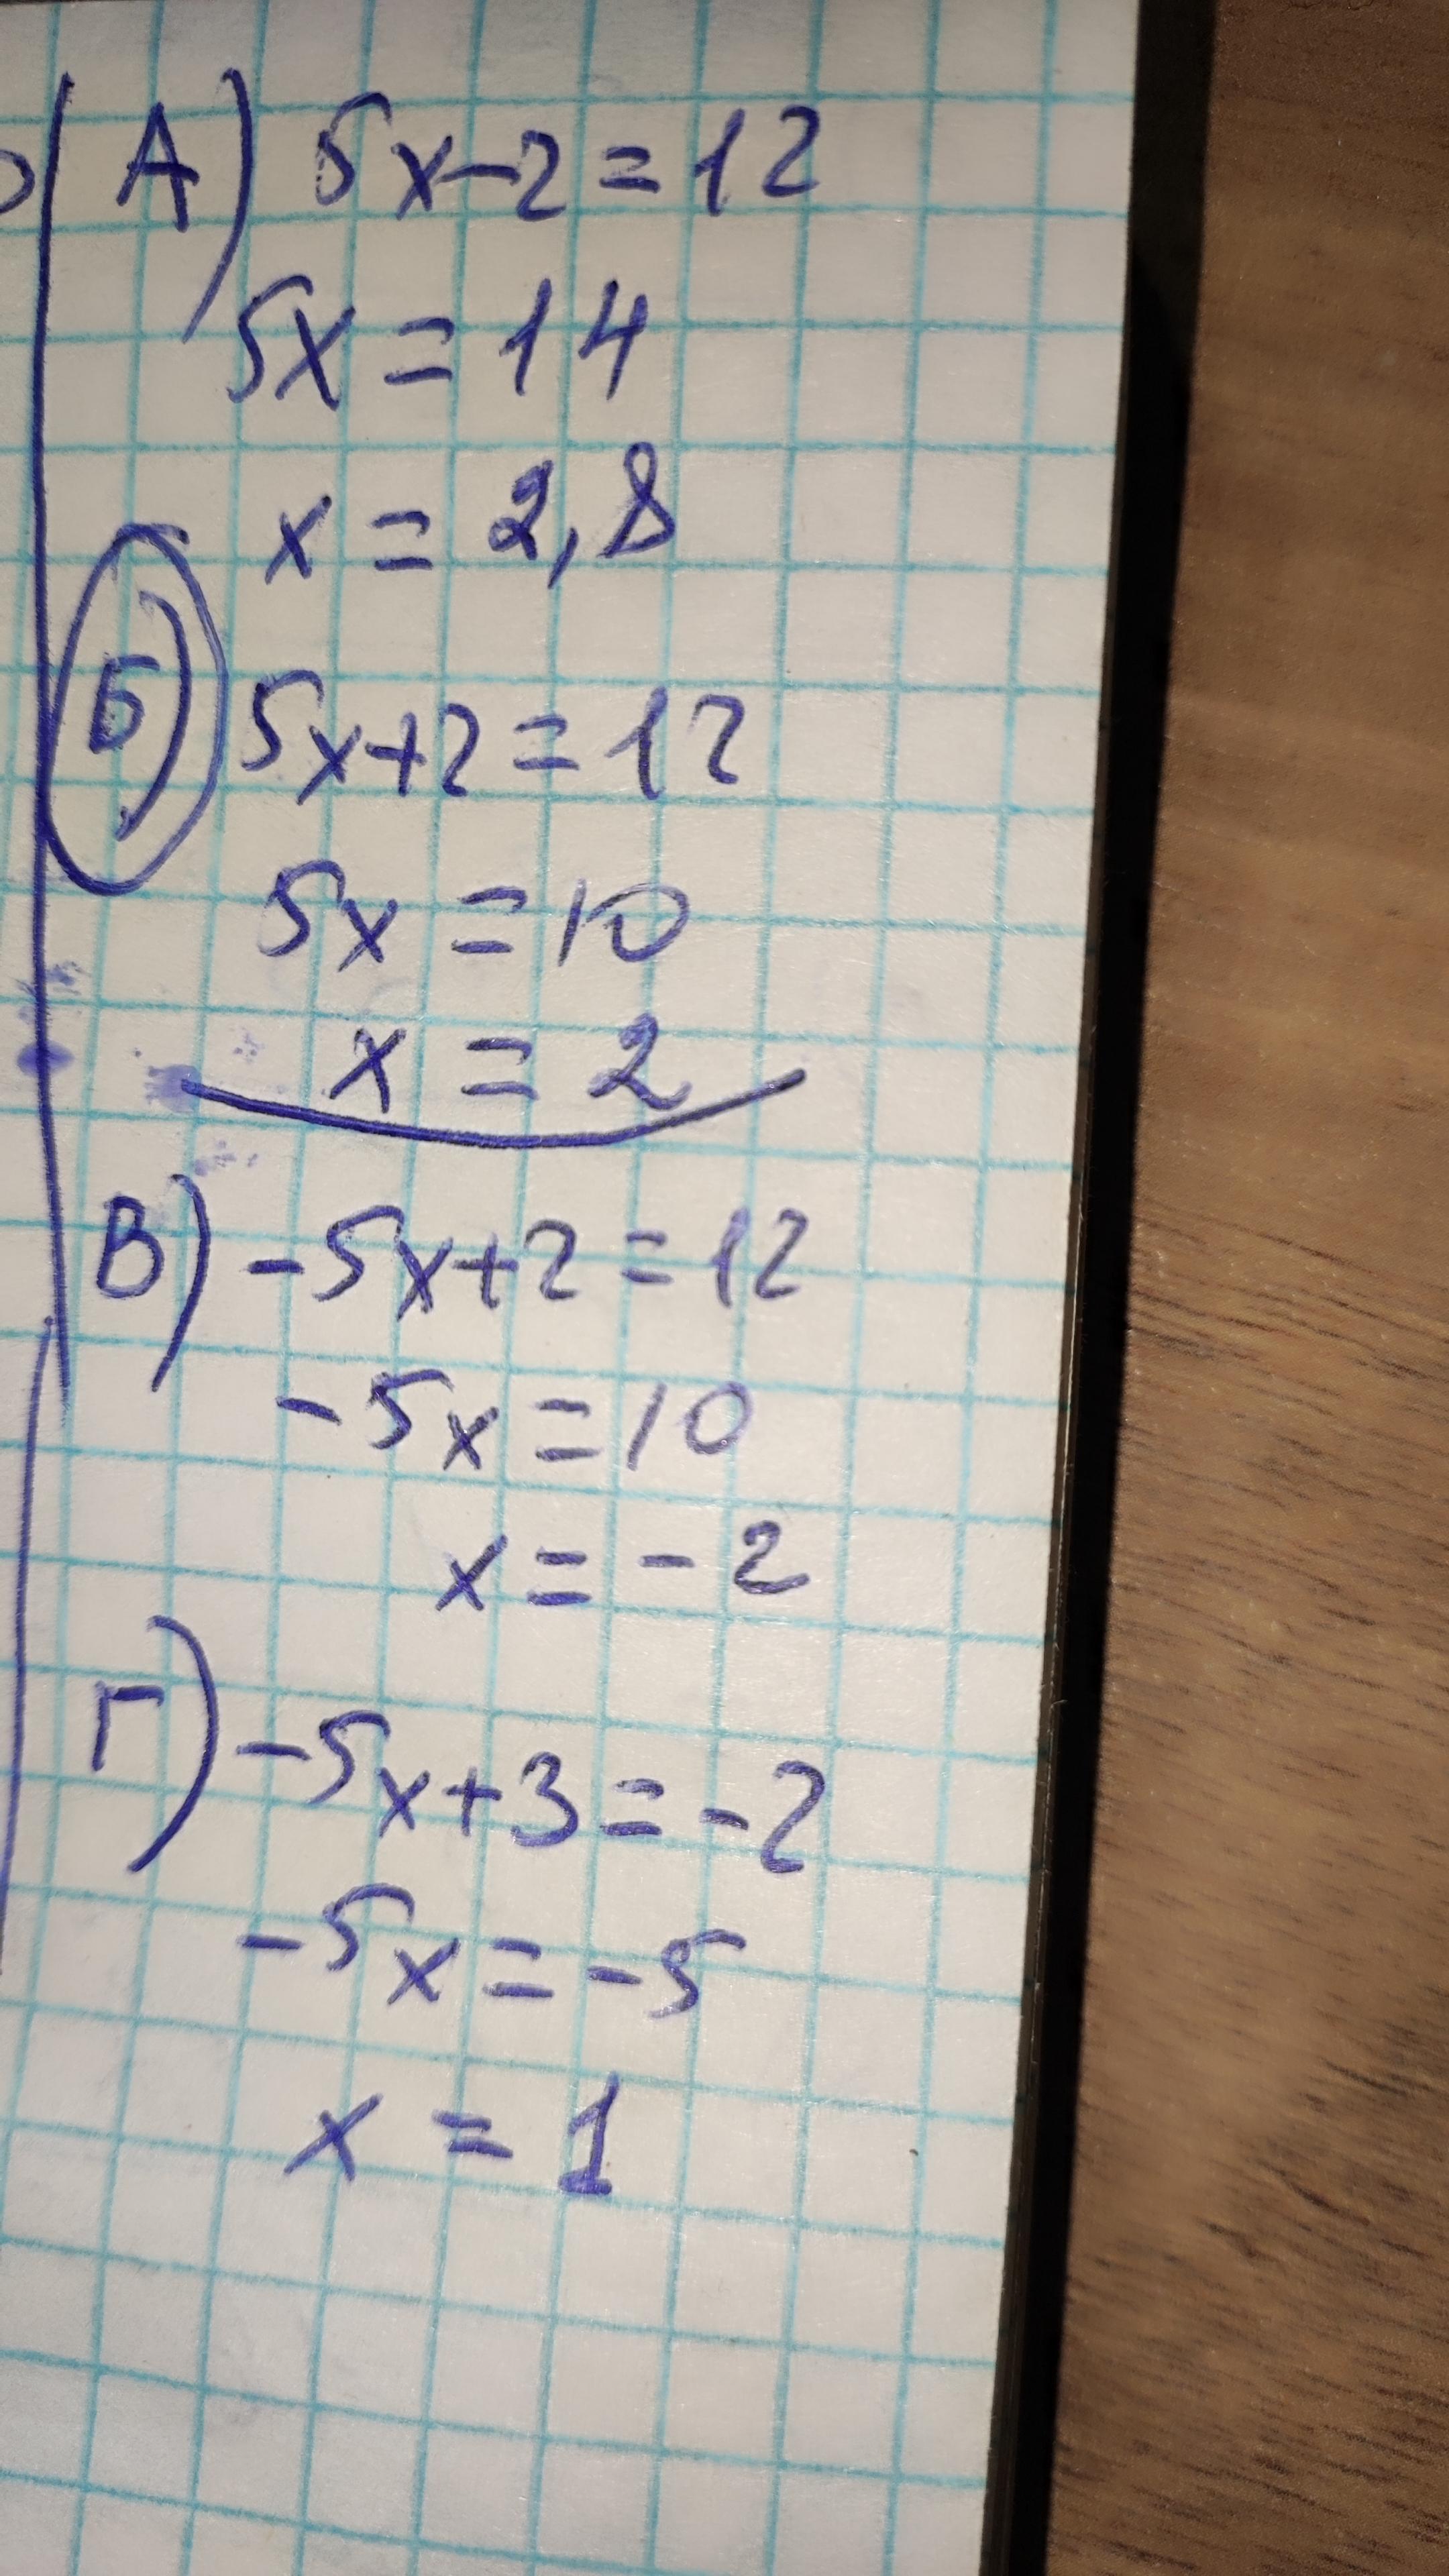 А) 5x-2=12
5x=14
x=2,8
Б) 5x+2=12
5x=10
x=2
В) -5x+2=12
-5x=10
x=-2
Г) -5x+3=-2
-5x=-5
x=1